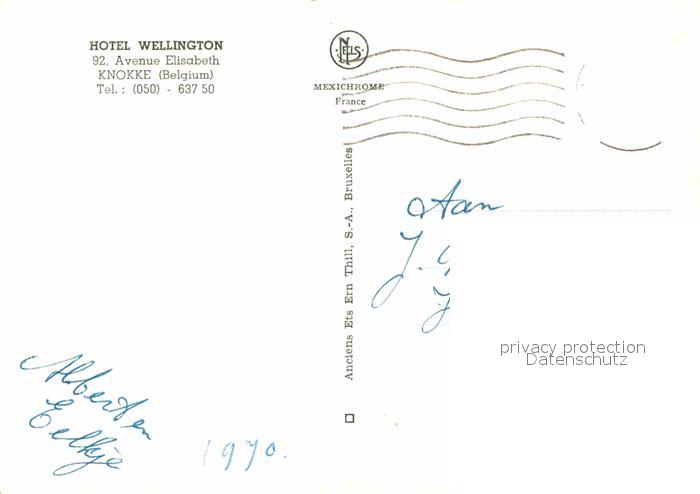 HOTEL WELLINGTON
92, Avenue Elisabeth
KNOKKE (Belgium)
Tel. : (050) - 637 50
NELS
MEXICHROME
France
Anciens Ets Ern Thill, S.-A., Bruxelles
Aan
J.
privacy protection
Datenschutz
Albert en
Eelkje
1970.